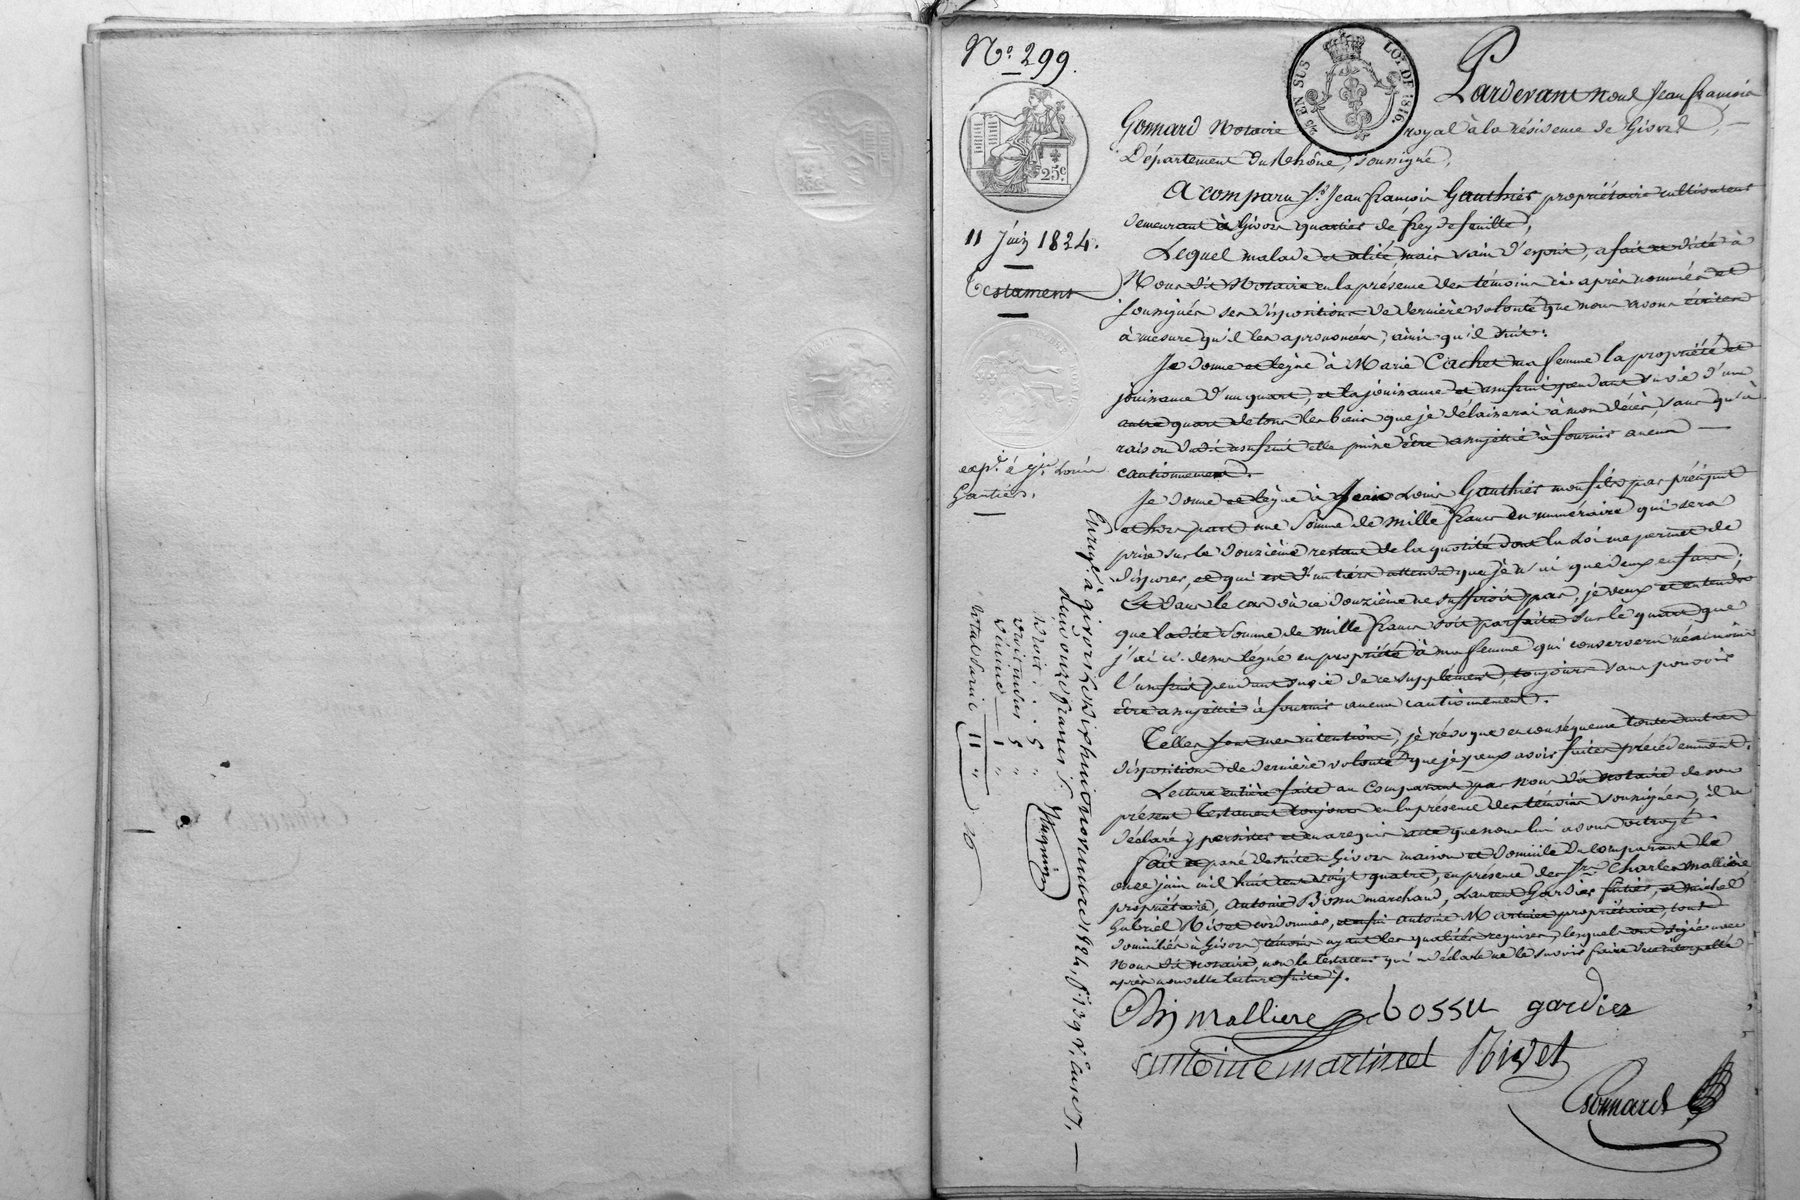 N.º 299.
¼ EN SUS
LOI DE 1816.
25.c
11 Juin 1824.
Testament
exp.é à Jn. Louis
Gautier.
Pardevant nous Jean françois
Gonnard Notaire royal à la résidence de Givors,
Département du Rhône, soussigné,
A comparu Sr. Jean françois Gauthier propriétaire cultivateur
demeurant à Givors quartier de freydefeuille,
Lequel malade et alité mais sain d'esprit, a fait et dicté à
Nous dit Notaire en la présence des témoins ci-après nommés et
soussignés ses dispositions de dernière volonté que nous avons écrites
à mesure qu'il les a prononcées, ainsi qu'il suit:
Je donne et lègue à Marie Cachet ma femme la propriété et
jouissance d'un quart, et la jouissance et usufruit pendant sa vie d'un
autre quart de tous les biens que je délaisserai à mon décès, sans qu'à
raison dudit usufruit elle puisse être assujettie à fournir aucun
cautionnement.
Je donne et lègue à Jean Louis Gauthier mon fils par préciput
et hors part une somme de mille francs en numéraire qui sera
prise sur le douzième restant de la quotité dont la Loi me permet de
disposer, et qui est d'un tiers attendu que je n'ai que deux enfans;
Et dans le cas où ce douzième ne suffiroit pas, je veux et entends
que ladite somme de mille francs soit parfaite sur le quart que
j'ai ci-dessus légué en propriété à ma femme qui conservera néanmoins
l'usufruit pendant sa vie de ce supplément, toujours sans pouvoir
être assujettie à fournir aucun cautionnement.
Telles sont mes intentions, je révoque en conséquence toutes autres
dispositions de dernière volonté que je peux avoir faites précédemment.
Lecture entière faite au Comparant par nous dit notaire de son
présent testament toujours en la présence des témoins soussignés, il a
déclaré y persister et en a requis acte que nous lui avons octroyé.
fait et passé de suite à Givors maison et domicile du comparant le
onze juin mil huit cent vingt quatre, en présence des Srs. Charles Mallière
propriétaire, Antoine Bossu marchand, Laurent Gardier
Gabriel Rivet cordonnier, et enfin Antoine Martinet propriétaire, tous
domiciliés à Givors témoins ayant les qualités requises, lesquels ont signé avec
Nous dit notaire, non le testateur qui a déclaré ne le savoir faire de ce interpellé
après nouvelle lecture faite.
malliere bossu gardier
antoine martinet Rivet
Gonnard
Enregé. à givors le dix huit novembre 1824, fo. 139 v. case 7.
reçu onze francs
Droit . . . 5 "
Droit en sus 5 "
Dixième 1 "
total 11 "